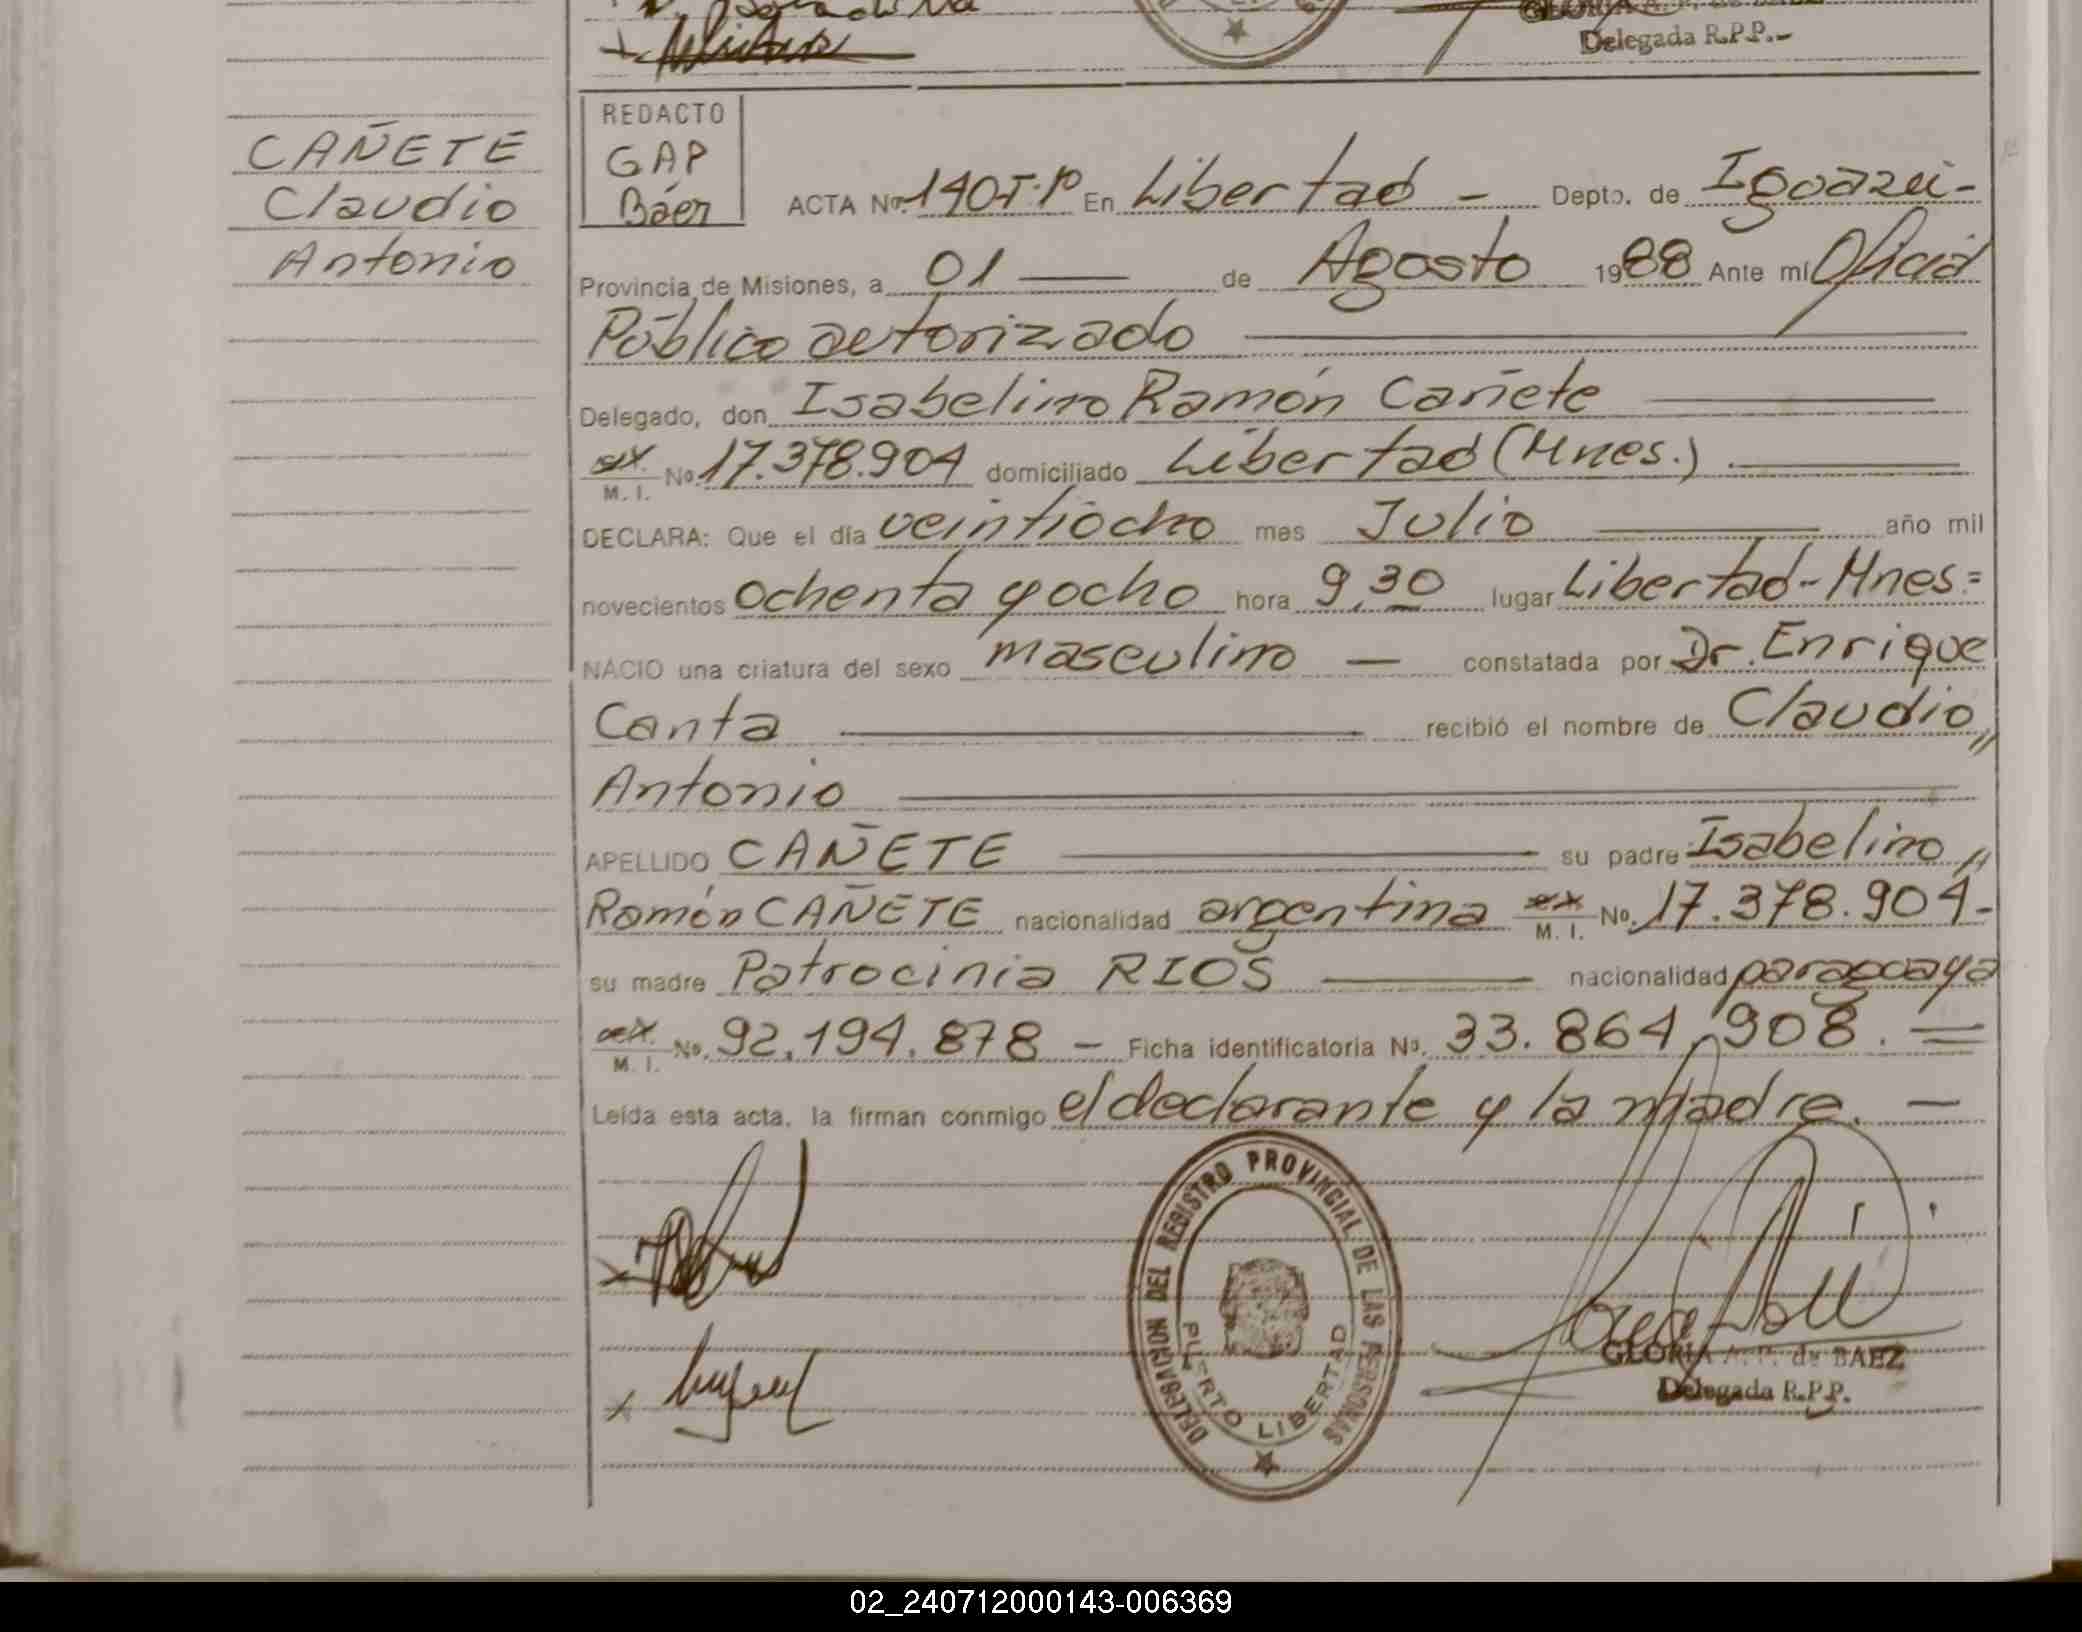 Delegada R.P.P.-
CAÑETE
Claudio
Antonio
REDACTO
GAP
Báez
ACTA Nº 140 T.1º En Libertad - Depto. de Iguazú-
Provincia de Misiones, a 01 de Agosto 1988 Ante mí Oficial
Público autorizado
Delegado, don Isabelino Ramón Cañete
M. I. Nº 17.378.904 domiciliado Libertad (Mnes.)
DECLARA: Que el día veintiocho mes Julio año mil
novecientos ochenta y ocho hora 9,30 lugar Libertad-Mnes=
NACIO una criatura del sexo masculino - constatada por Dr. Enrique
Canta recibió el nombre de Claudio,,
Antonio
APELLIDO CAÑETE su padre Isabelino,,
Ramón CAÑETE nacionalidad argentina M. I. Nº 17.378.904-
su madre Patrocinia RIOS nacionalidad paraguaya
M. I. Nº 92.194.878 - Ficha identificatoria Nº 33.864.908. =
Leída esta acta, la firman conmigo el declarante y la madre. -
DELEGACION DEL REGISTRO PROVINCIAL DE LAS PERSONAS
PUERTO LIBERTAD
GLORIA A. P. de BAEZ
Delegada R.P.P.
02_240712000143-006369